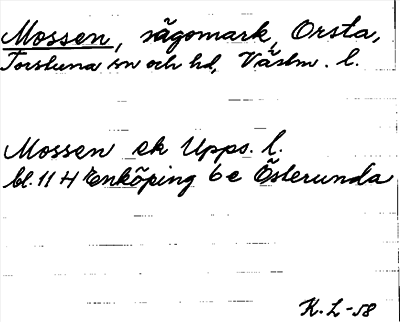 Mossen, ägomark, Orsta,
Torstuna sn och hd, Västm. l.
Mossen ek Upps. l.
bl. 11 H Enköping 6 e Österunda
K. L -58